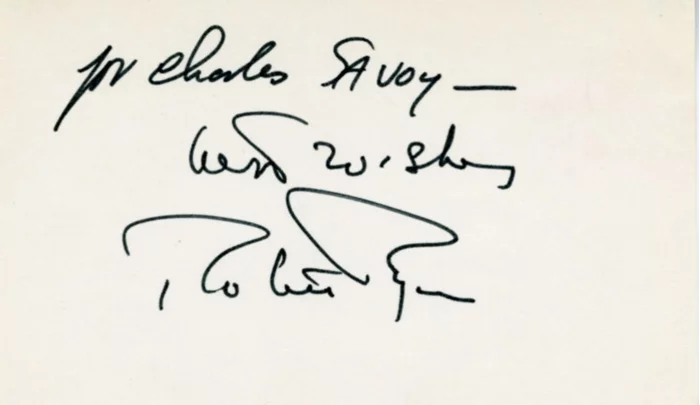 for Charles SAVOY —
best wishes
Robert Ryan